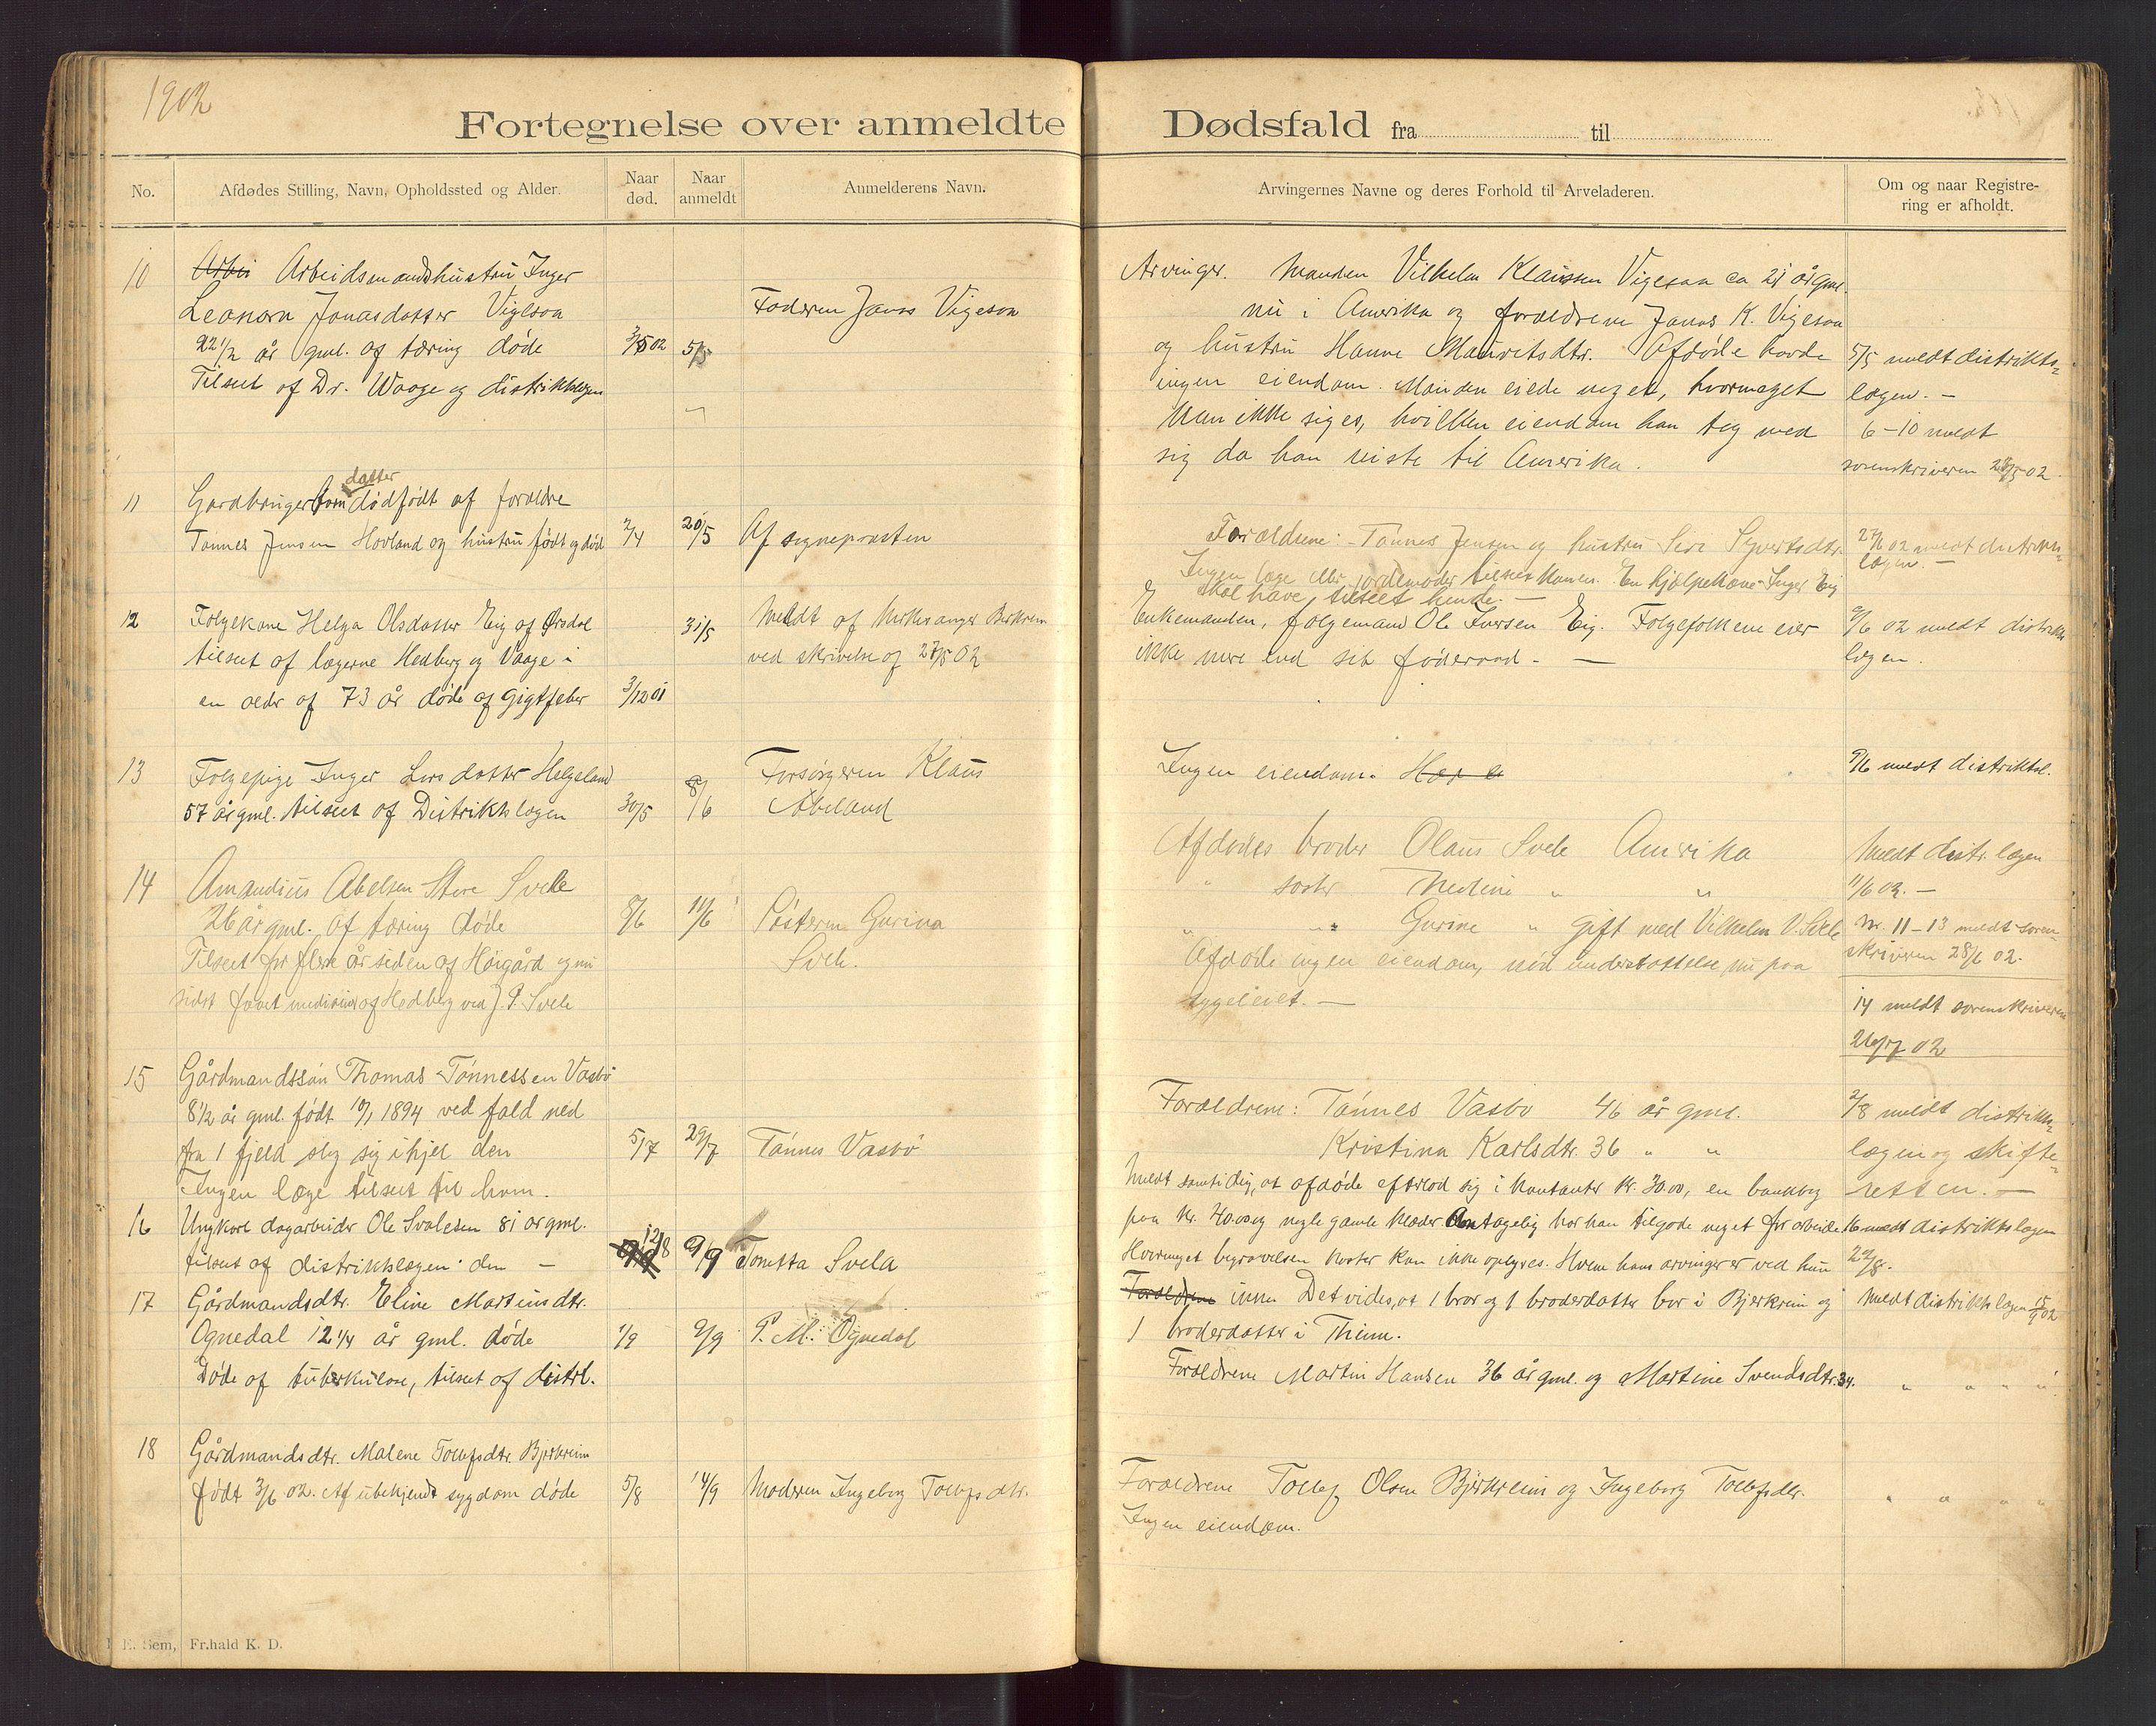 1902
Fortegnelse over anmeldte Dødsfald fra til
No.
Afdødes Stilling, Navn, Opholdssted og Alder.
Naar død.
Naar anmeldt
Anmelderens Navn.
Arvingernes Navne og deres Forhold til Arveladeren.
Om og naar Registrering er afholdt.
10 Arbei Arbeidsmandshustru Inger
Leonora Jonasdatter Vigesaa
22 1/2 år gml. af tæring døde 3/5 02 5/5
Tilseet af Dr. Waage og distriktslægen
Faderen Jonas Vigesaa
Arvinger. Manden Vilhelm Klaussen Vigesaa ca 21 år gml.
nu i Amerika og forældrene Jonas K. Vigesaa
og hustru Hanne Mauritsdtr. Afdøde havde
ingen eiendom. Manden eiede noget, hvormeget
kan ikke siges, hvilken eiendom han tog med
sig da han reiste til Amerika.
5/5 meldt distrikts-
lægen. —
6-10 meldt
sorenskriveren 28/5 02.
11 Gardbruger datter dødfødt af forældre
Tønnes Jensen Hovland og hustru født og død 2/4 20/5 Af sognepræsten
Forældrene: Tønnes Jensen og hustru Siri Sivertsdtr.
Ingen læge eller jordemoder tilseet konen. En hjælpekone Inger Eig
skal have tilseet hende. —
27/6 02 meldt distrikts-
lægen. —
12 Følgekone Helga Olsdatter Eig af Ørsdal
tilseet af lægerne Hedberg og Vaage i
en alder af 73 år døde af gigtfeber 3/12 01 31/5
Meldt af Kirkesanger Birkrem
ved skrivelse af 27/5 02
Enkemanden, følgemand Ole Iversen Eig. Følgefolkene eier
ikke mere end sit føderaad. —
9/6 02 meldt distrikts
lægen.
13 Følgepige Inger Larsdatter Helgeland
57 år gml. tilseet af Distriktslægen 30/5 8/6
Forsørgeren Klaus
Abeland
Ingen eiendom. Har e
9/6 meldt distriktsl.
14 Amandius Abelsen Store Svele
26 år gml. af tæring døde 8/6 11/6
Tilseet for flere år siden af Høigård og nu
sidst faaet medisiner af Hedberg ved J. P. Svele
Søsteren Gurina
Svele.
Afdødes broder Olaus Svele Amerika
" søster Medine " "
" " Gurine " gift med Vilhelm V. Svele
Afdøde ingen eiendom, nød understøttelse nu paa
sygeleiet. —
Meldt distr. lægen
11/6 02. —
Nr. 11-13 meldt soren-
skriveren 28/6 02.
14 meldt sorenskriveren
26/7 02
15 Gårdmandssøn Thomas Tønnessen Vasbø
8 1/2 år gml. født 19/1 1894 ved fald ned
fra 1 fjeld slog sig ihjel den 5/7 29/7 Tønnes Vasbø
Ingen læge tilseet til ham.
Forældrene: Tønnes Vasbø 46 år gml.
Kristina Karlsdtr. 36 " "
2/8 meldt distrikts-
lægen og skifte-
retten. —
16 Ungkarl dagarbeider Ole Svalesen 81 år gml.
tilseet af distriktslægen den — 12/8 9/9 Tonetta Svela
Meldt samtidig, at afdøde efterlod sig i kontanter kr. 30.00, en bankbog
paa kr. 40.00 og nogle gamle klæder. Antagelig har han tilgode noget for arbeide.
Hvormeget begravelsen koster kan ikke oplyses. Hvem hans arvinger er ved hun
Forældrene inne Det vides, at 1 bror og 1 broderdatter bor i Bjerkreim og
1 broderdatter i Thime.
16 meldt distriktslægen
22/8.
17 Gårdmandsdtr. Eline Martinsdtr.
Ognedal 12 1/4 år gml. døde 1/9 9/9 P. M. Ognedal
Døde af tuberkulose, tilseet af distrl.
Forældrene Martin Hansen 36 år gml. og Martine Svendsdtr. 34.
Meldt distriktslægen 15/9 02
" " " "
18 Gårdmandsdtr. Malene Tollefsdtr. Bjerkreim
født 3/6 02. Af ubekjendt sygdom døde 5/8 14/9 Moderen Ingeborg Tollefsdtr.
Forældrene Tollef Olsen Bjerkreim og Ingeborg Tollefsdtr.
Ingen eiendom.
" " " "
E. Sem, Fr.hald K. D.